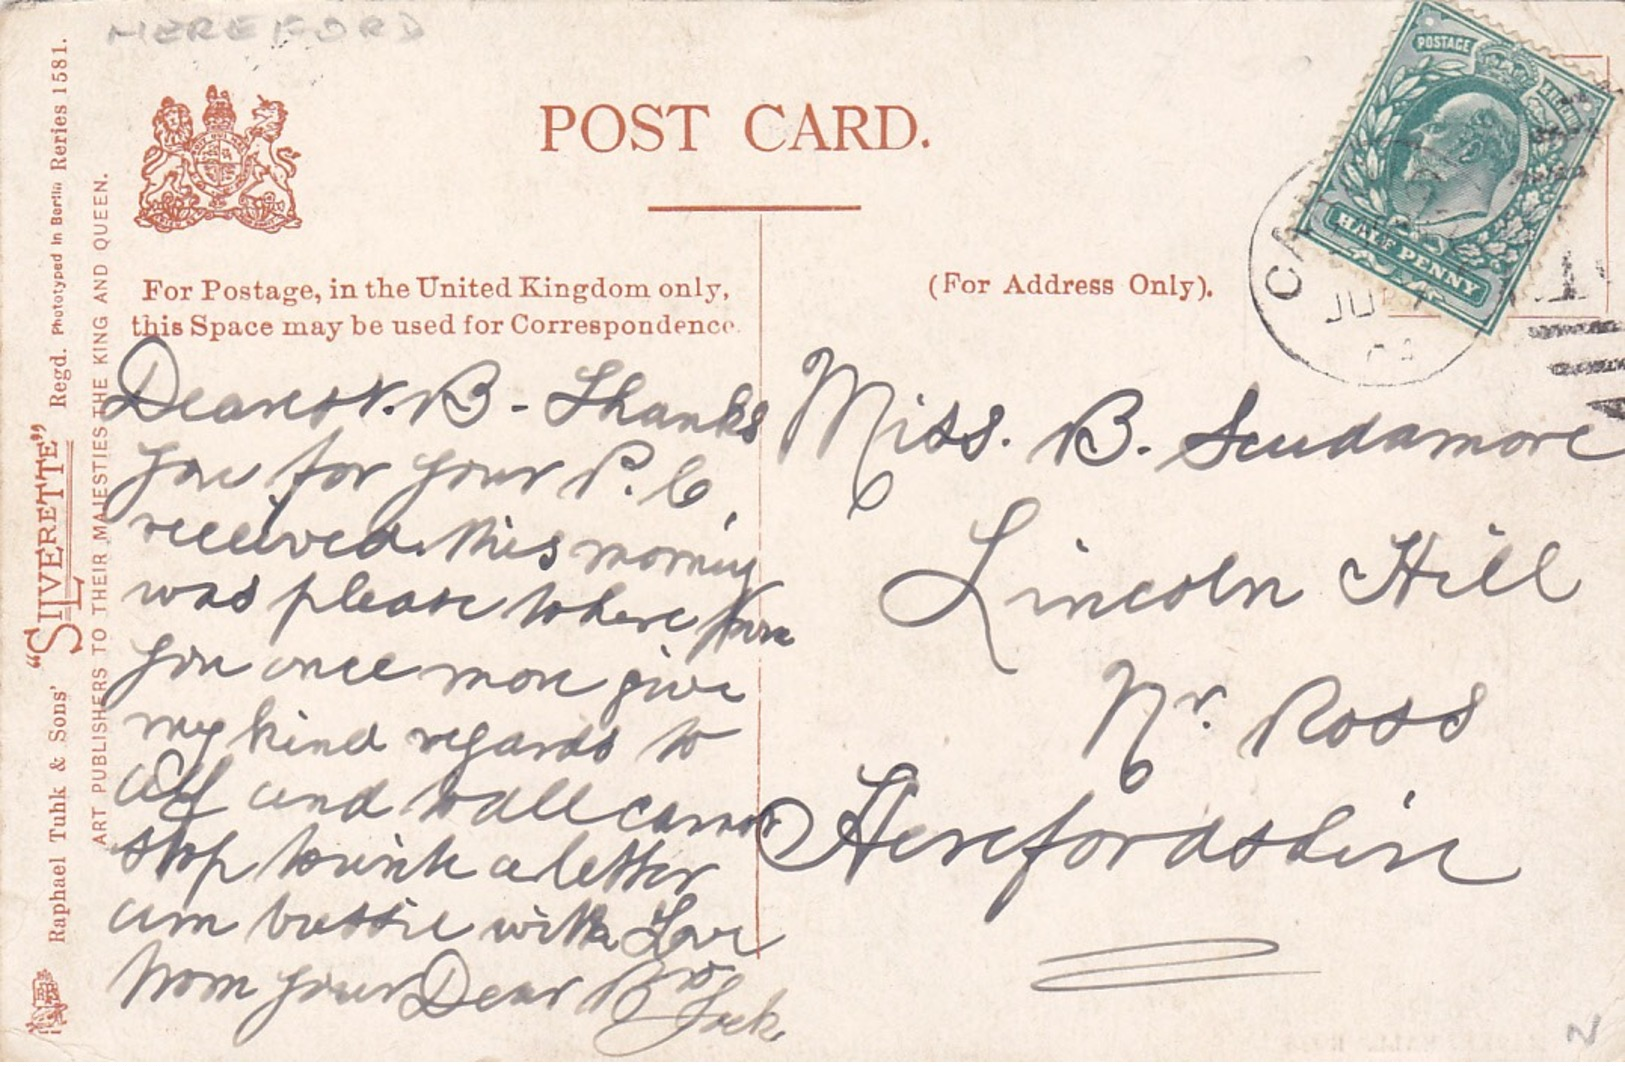 HEREFORD
POST CARD.
For Postage, in the United Kingdom only,
this Space may be used for Correspondence.
(For Address Only).
Raphael Tuhk & Sons' "SILVERETTE" Regd. Phototyped in Berlin Reries 1581.
ART PUBLISHERS TO THEIR MAJESTIES THE KING AND QUEEN.
POSTAGE
HALF PENNY
JU
Dearest. B - Thanks
you for your P. C
received. this morning
was please to here from
you once more give
my kind regards to
Alf and to all cannot
stop to write a letter
am bussie with Love
from your Dear Bro
Jack.
Miss. B. Scudamore
Lincoln Hill
Nr. Ross
Herefordshire
N